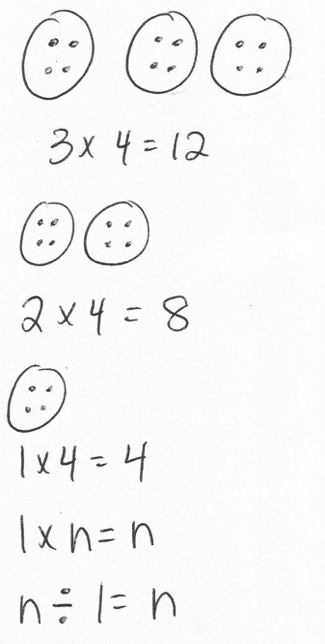 3 x 4 = 12
2 x 4 = 8
1 x 4 = 4
1 x n = n
n ÷ 1 = n